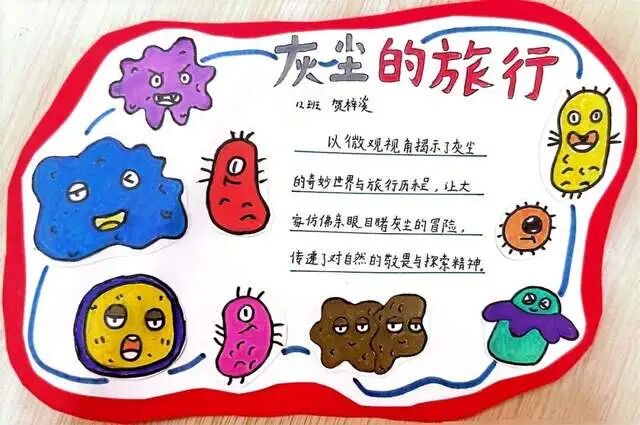 灰尘的旅行
12班 贺梓溪
以微观视角揭示了灰尘
的奇妙世界与旅行历程，让大
家仿佛亲眼目睹灰尘的冒险，
传递了对自然的敬畏与探索精神。